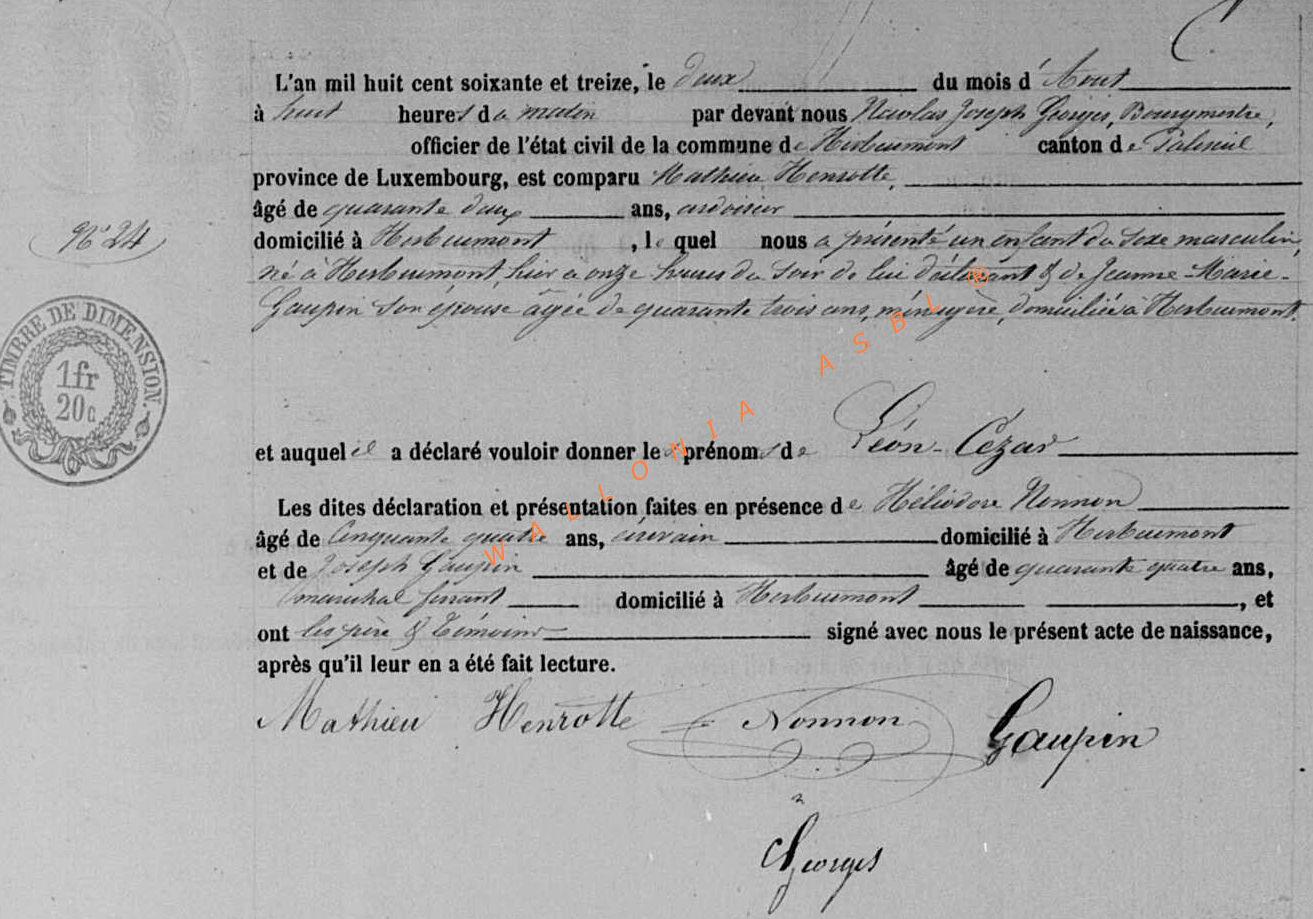 L'an mil huit cent soixante et treize, le deux du mois d'Aout
à huit heures du matin par devant nous Nicolas Joseph Georges, Bourgmestre,
officier de l'état civil de la commune de Herbeumont canton de Paliseul
province de Luxembourg, est comparu Mathieu Henrotte,
âgé de quarante deux ans, ardoisier
N° 24
domicilié à Herbeumont, lequel nous a présenté un enfant du sexe masculin,
né à Herbeumont, hier a onze heures du soir de lui déclarant & de Jeanne-Marie-
Gaupin son épouse agée de quarante trois ans, ménagère, domiciliés à Herbeumont.
TIMBRE DE DIMENSION.
1fr
20c
et auquel il a déclaré vouloir donner les prénoms de Léon-Cézar
Les dites déclaration et présentation faites en présence de Héliodore Nonnon
âgé de Cinquante quatre ans, écrivain domicilié à Herbeumont
et de Joseph Gaupin âgé de quarante quatre ans,
maréchal ferrant domicilié à Herbeumont, et
ont les père & témoins signé avec nous le présent acte de naissance,
après qu'il leur en a été fait lecture.
Mathieu Henrotte Nonnon Gaupin
Georges
WALLONIA ASBL ®